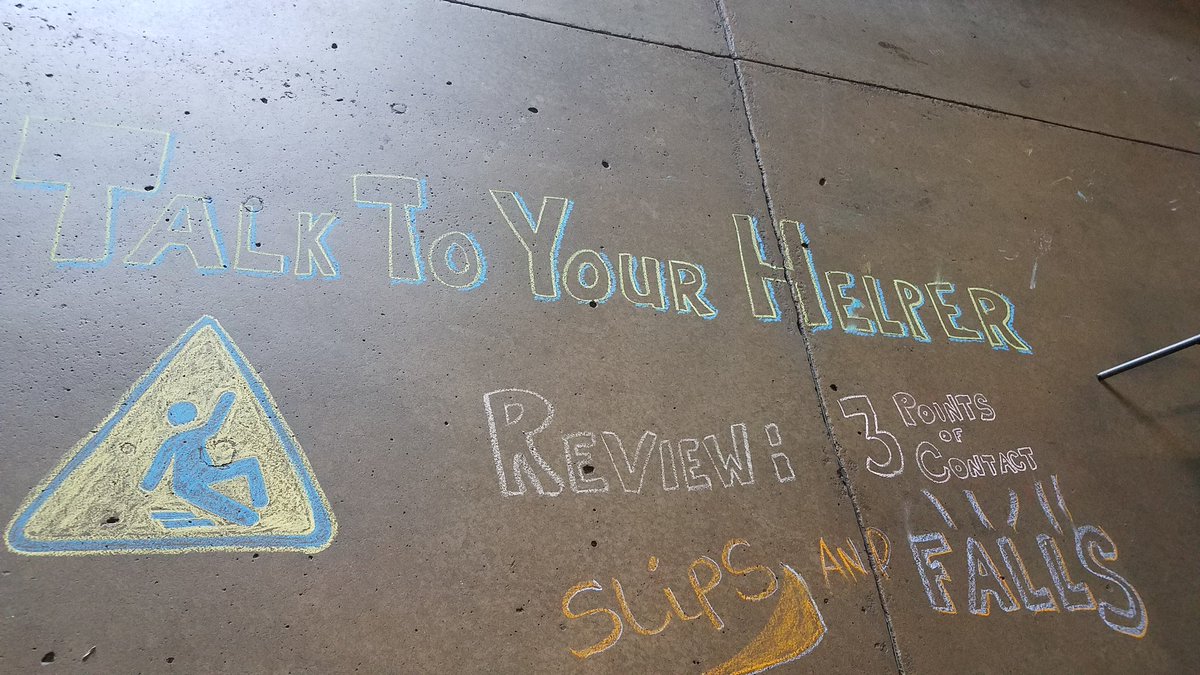 TALK TO YOUR HELPER
REVIEW: 3 POINTS
OF
CONTACT
SLiPS AND FALLS